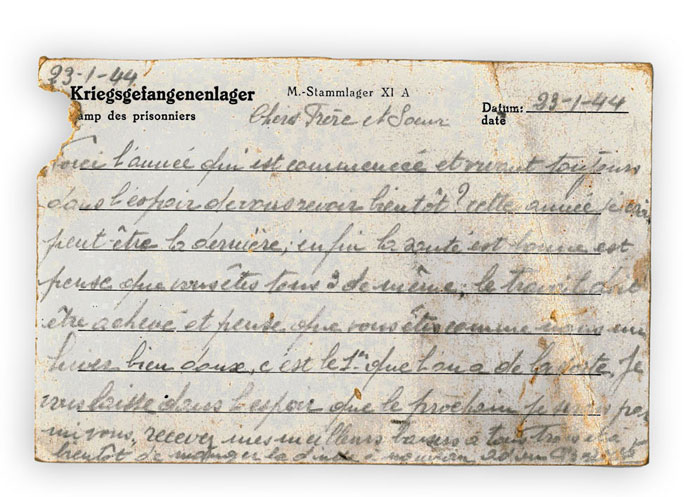 23-1-44
Kriegsgefangenenlager M.-Stammlager XI A Datum: 23-1-44
amp des prisonniers date
Chers Frère et Soeur
l'année qui est commencée et vivant toujours
dans l'espoir de vous revoir bientôt? cette année je
peut être la dernière, enfin la santé est bonne est
pense que vous êtes tous 3 de même; le travail doit
être achevé et pense que vous êtes comme nous un
hiver bien doux, c'est le 1er que l'on a de la sorte, Je
vous laisse dans l'espoir que le prochain je serais par
mi vous, recevez mes meilleurs baisers à tous trois et à
bientôt de manger la